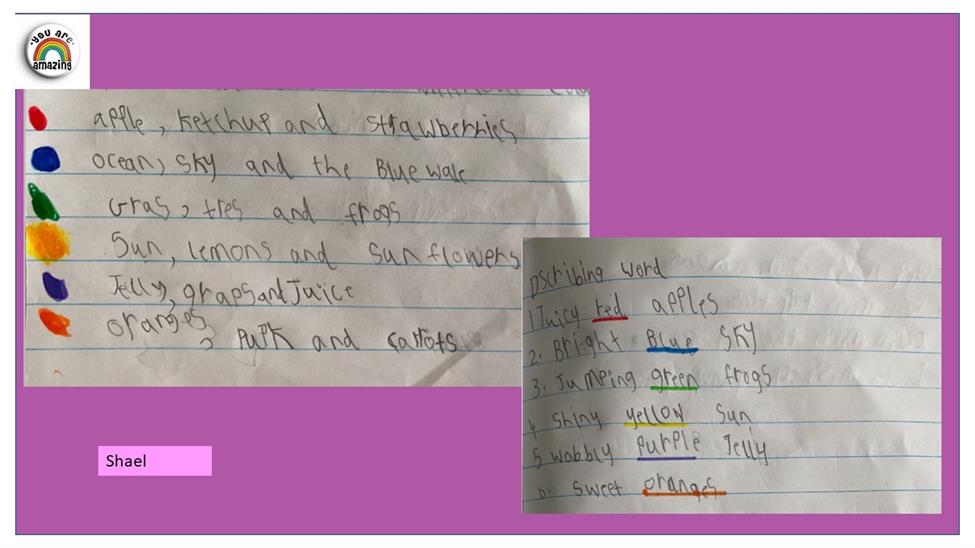 YOU are
amazing
apple, ketchup and strawberries
ocean, sky and the Blue wale
Gras, tres and frogs
Sun, lemons and sunflowers
Jelly, graps and Juice
oranges, and carrots
Dscribing word
1 Juicy red apples
2. Bright Blue sky
3. Jumping green frogs
4 shiny yellow sun
5 wobbly purple Jelly
6. sweet oranges
Shael